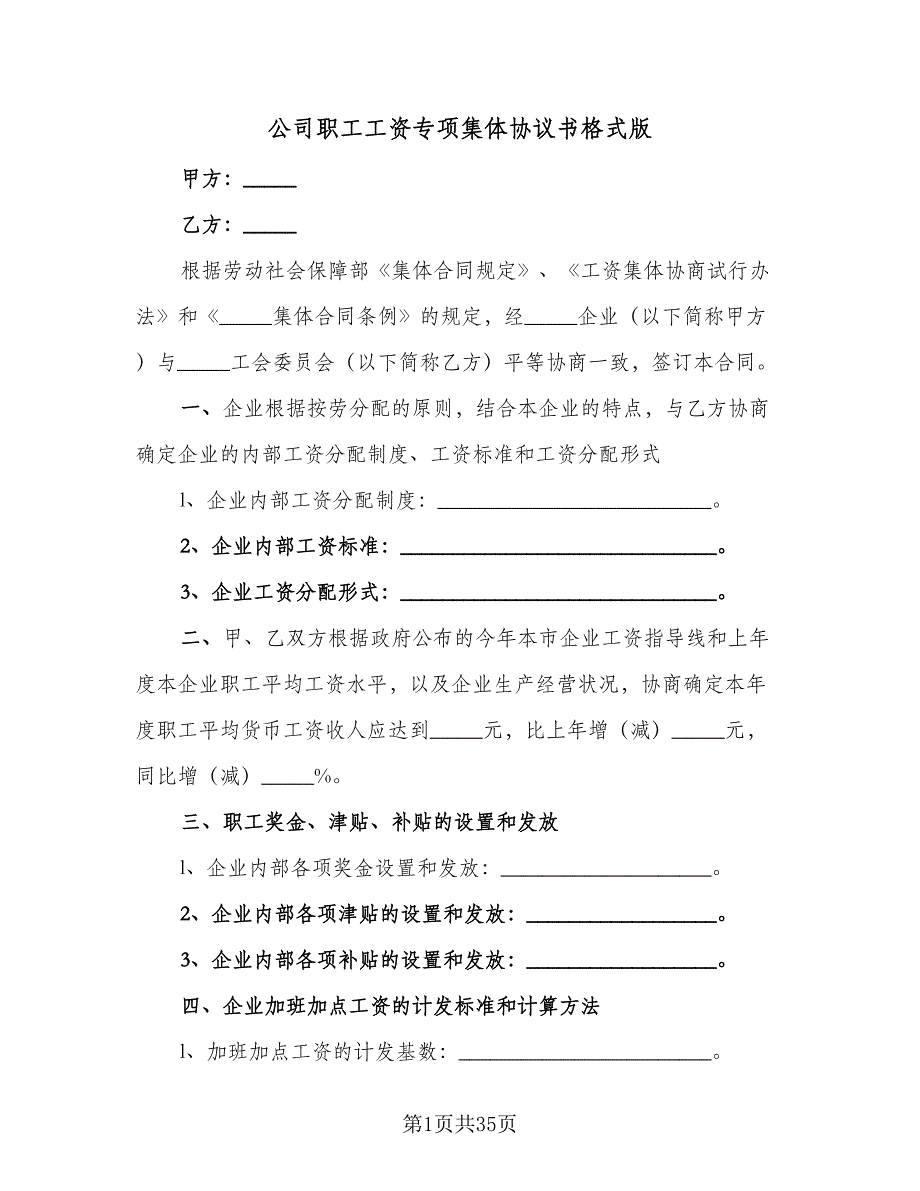 公司职工工资专项集体协议书格式版
甲方：_____
乙方：_____
根据劳动社会保障部《集体合同规定》、《工资集体协商试行办
法》和《_____集体合同条例》的规定，经_____企业（以下简称甲方
）与_____工会委员会（以下简称乙方）平等协商一致，签订本合同。
一、企业根据按劳分配的原则，结合本企业的特点，与乙方协商
确定企业的内部工资分配制度、工资标准和工资分配形式
l、企业内部工资分配制度：__________________________。
2、企业内部工资标准：______________________________。
3、企业工资分配形式：______________________________。
二、甲、乙双方根据政府公布的今年本市企业工资指导线和上年
度本企业职工平均工资水平，以及企业生产经营状况，协商确定本年
度职工平均货币工资收人应达到_____元，比上年增（减）_____元，
同比增（减）_____%。
三、职工奖金、津贴、补贴的设置和发放
l、企业内部各项奖金设置和发放：____________________。
2、企业内部各项津贴的设置和发放：__________________。
3、企业内部各项补贴的设置和发放：__________________。
四、企业加班加点工资的计发标准和计算方法
l、加班加点工资的计发基数：________________________。
第1页共35页